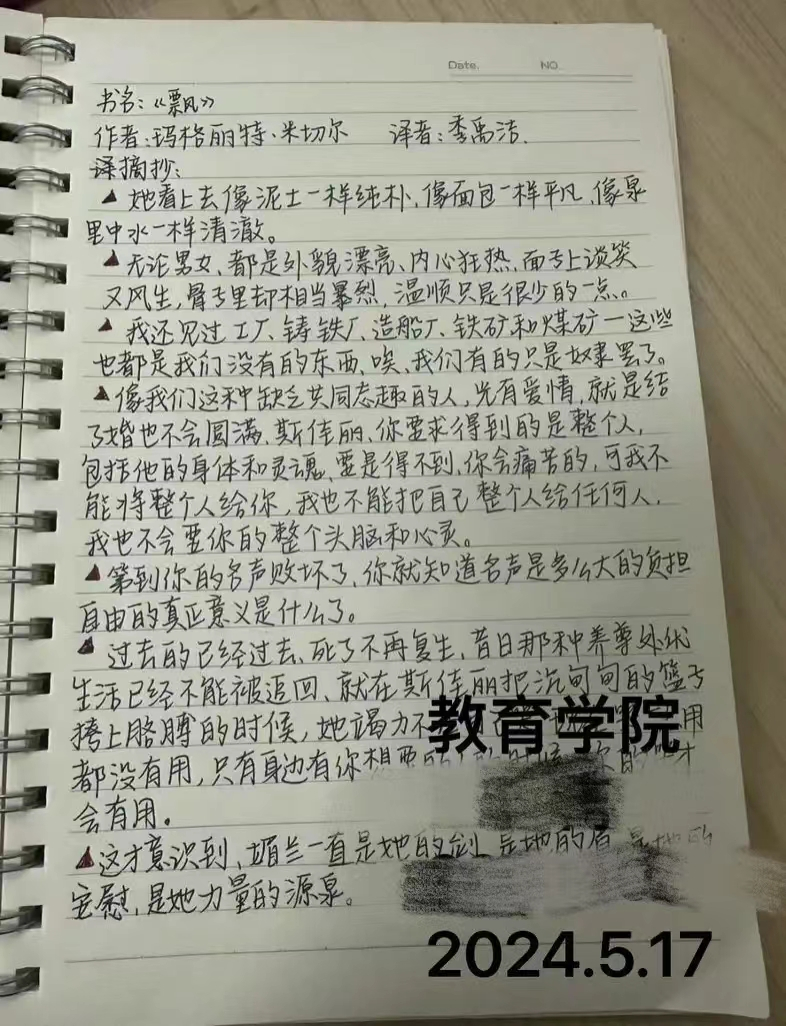 Date. NO
书名:《飘》
作者:玛格丽特·米切尔 译者:李禹洁.
译摘抄:
她看上去像泥土一样纯朴,像面包一样平凡,像泉
里中水一样清澈。
无论男女、都是外貌漂亮、内心狂热,面上谈笑
又风生,骨子里却相当暴烈,温顺只是很少的一点。
我还见过工厂、铸铁厂、造船厂、铁矿和煤矿一这些
也都是我们没有的东西、唉、我们有的只是奴隶罢了。
像我们这种缺乏共同志趣的人,光有爱情,就是结
了婚也不会圆满、斯佳丽、你要求得到的是整个人,
包括他的身体和灵魂、要是得不到、你会痛苦的,可我不
能将整个人给你,我也不能把自己整个人给任何人,
我也不会要你的整个头脑和心灵。
等到你的名声败坏了,你就知道名声是多么大的负担
自由的真正意义是什么了。
过去的已经过去、死了不再复生,昔日那种养尊处优
生活已经不能被追回、就在斯佳丽把沉甸甸的篮子
挎上胳膊的时候,她竭力不
用
都没有用,只有身边有你想要的
才
会有用。
这才意识到、媚兰一直是她的剑、是她的盾,是她的
安慰,是她力量的源泉。
教育学院
2024.5.17